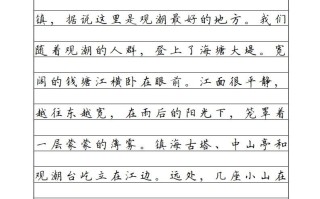 镇，据说这里是观潮最好的地方。我们
随着观潮的人群，登上了海塘大堤。宽
阔的钱塘江横卧在眼前。江面很平静，
越往东越宽，在雨后的阳光下，笼罩着
一层蒙蒙的薄雾。镇海古塔、中山亭和
观潮台屹立在江边。远处，几座小山在